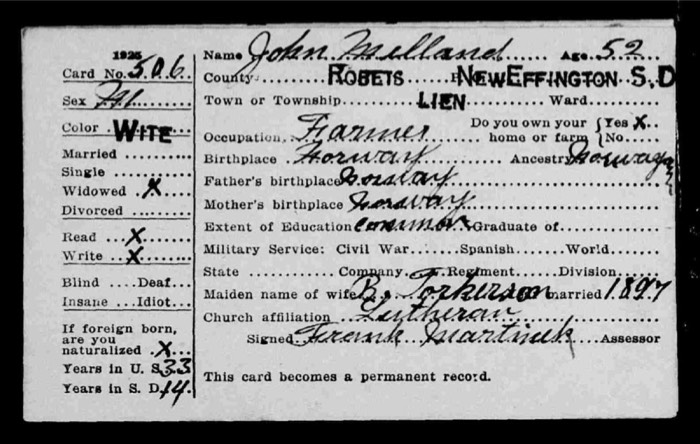 1925
Card No. 506
Sex M
Color WITE
Married
Single
Widowed X
Divorced
Read X
Write X
Blind Deaf
Insane Idiot
If foreign born,
are you
naturalized X
Years in U. S. 33
Years in S. D. 14
Name John Melland Age 52
County ROBETS P NEW EFFINGTON S.D
Town or Township LIEN Ward
Occupation Farmer Do you own your home or farm {Yes X No
Birthplace Norway Ancestry Norway
Father's birthplace Norway
Mother's birthplace Norway
Extent of Education common Graduate of
Military Service: Civil War Spanish World
State Company Regiment Division
Maiden name of wife B. Torkerson married 1897
Church affiliation Lutheran
Signed Frank Martinek Assessor
This card becomes a permanent record.